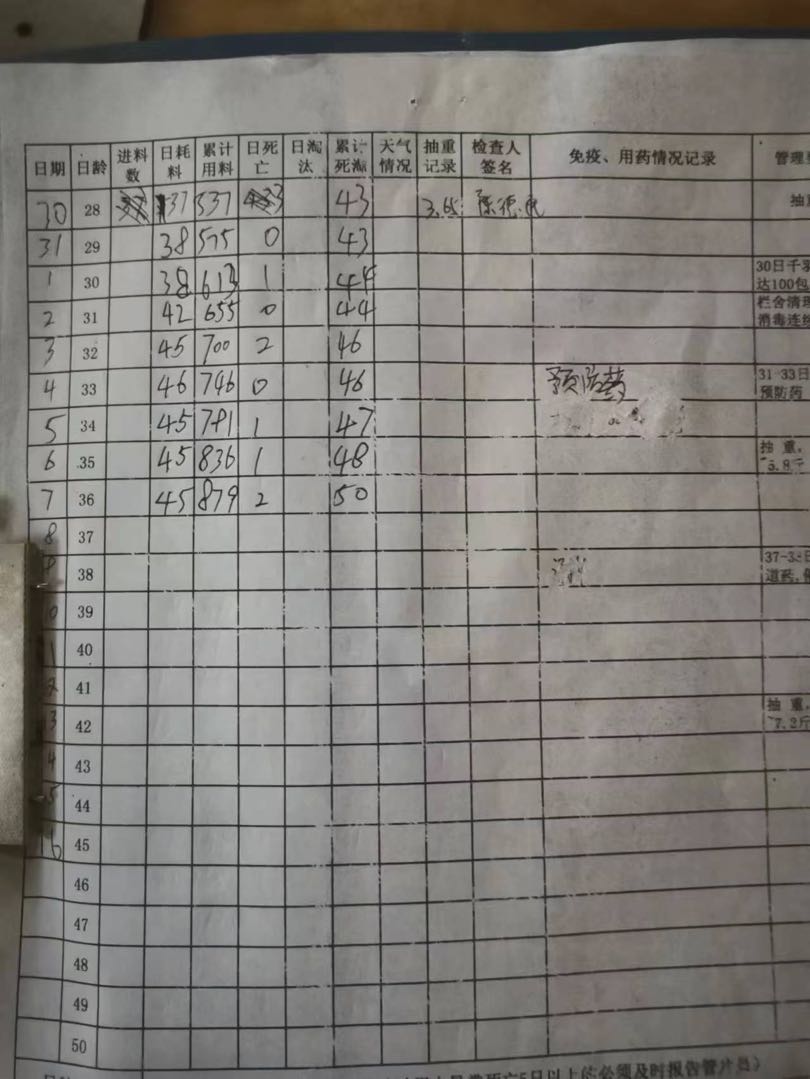 日期 日龄 进料数 日耗料 累计用料 日死亡 日淘汰 累计死淘 天气情况 抽重记录 检查人签名 免疫、用药情况记录 管理
30 28 37 537 3 43 3.65 陈德
31 29 38 575 0 43
1 30 38 613 1 44 30日千
达100包
2 31 42 655 0 44 栏舍清理
消毒连续
3 32 45 700 2 46
4 33 46 746 0 46 预防药 31-33日
预防药
5 34 45 791 1 47
6 35 45 836 1 48 抽重,
5.8斤
7 36 45 879 2 50
8 37
38 37-38日
道药,
10 39
11 40
41
13 42 抽重,
7.2斤
43
44
16 45
46
47
48
49
50
死亡5日以上的必须及时报告管片员)